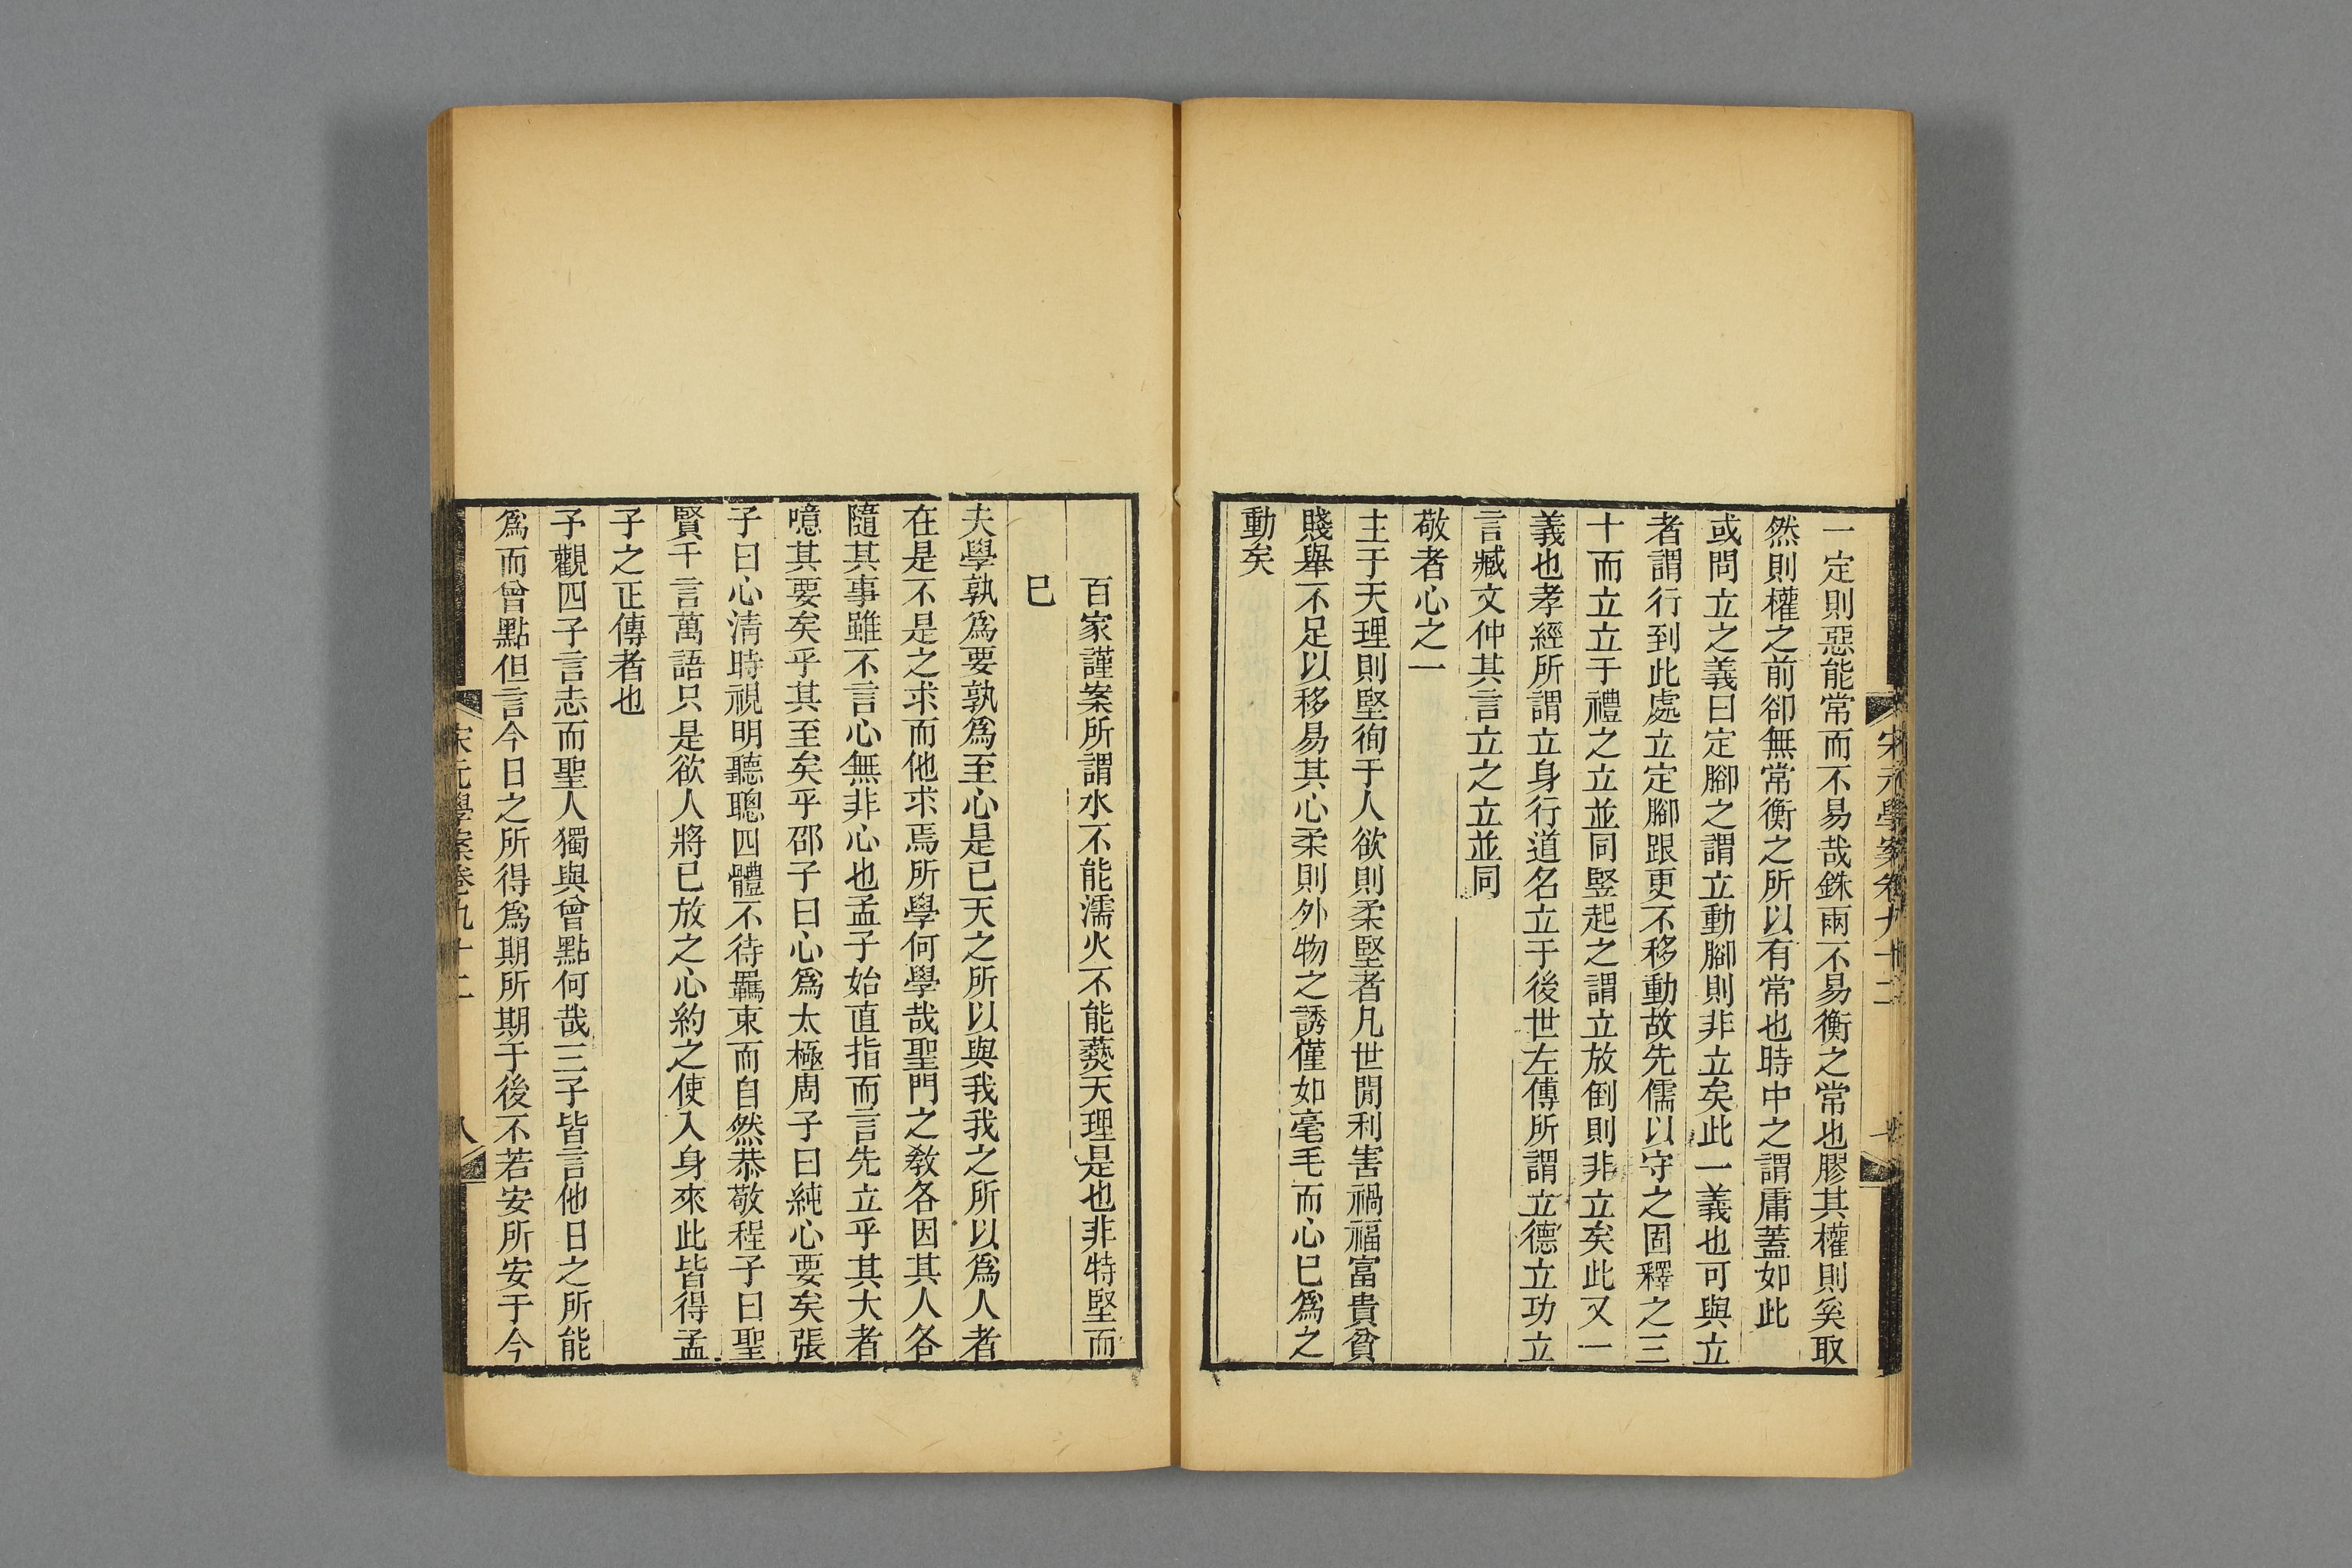 一定則惡能常而不易哉銖兩不易衡之常也膠其權則奚取
然則權之前卻無常衡之所以有常也時中之謂庸蓋如此
或問立之義曰定腳之謂立動腳則非立矣此一義也可與立
者謂行到此處立定腳跟更不移動故先儒以守之固釋之三
十而立立于禮之立並同豎起之謂立放倒則非立矣此又一
義也孝經所謂立身行道名立于後世左傳所謂立德立功立
言臧文仲其言立之立並同
敬者心之一
主于天理則堅徇于人欲則柔堅者凡世閒利害禍福富貴貧
賤舉不足以移易其心柔則外物之誘僅如毫毛而心已爲之
動矣
百家謹案所謂水不能濡火不能爇天理是也非特堅而
已
夫學孰爲要孰爲至心是已天之所以與我我之所以爲人者
在是不是之求而他求焉所學何學哉聖門之敎各因其人各
隨其事雖不言心無非心也孟子始直指而言先立乎其大者
噫其要矣乎其至矣乎邵子曰心爲太極周子曰純心要矣張
子曰心淸時視明聽聰四體不待羈束而自然恭敬程子曰聖
賢千言萬語只是欲人將已放之心約之使入身來此皆得孟
子之正傳者也
予觀四子言志而聖人獨與曾點何哉三子皆言他日之所能
爲而曾點但言今日之所得爲期所期于後不若安所安于今
宋元學案卷九十二
八